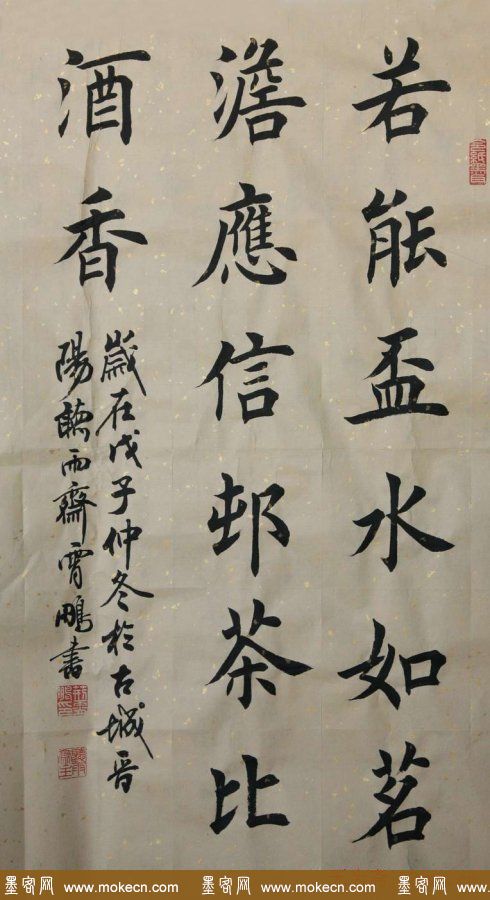 若能盃水如茗
澹應信邨茶比
酒香
歲在戊子仲冬於古城晋
陽聽雨齋霄鵬書
墨客网 www.mokecn.com 墨客网 www.mokecn.com